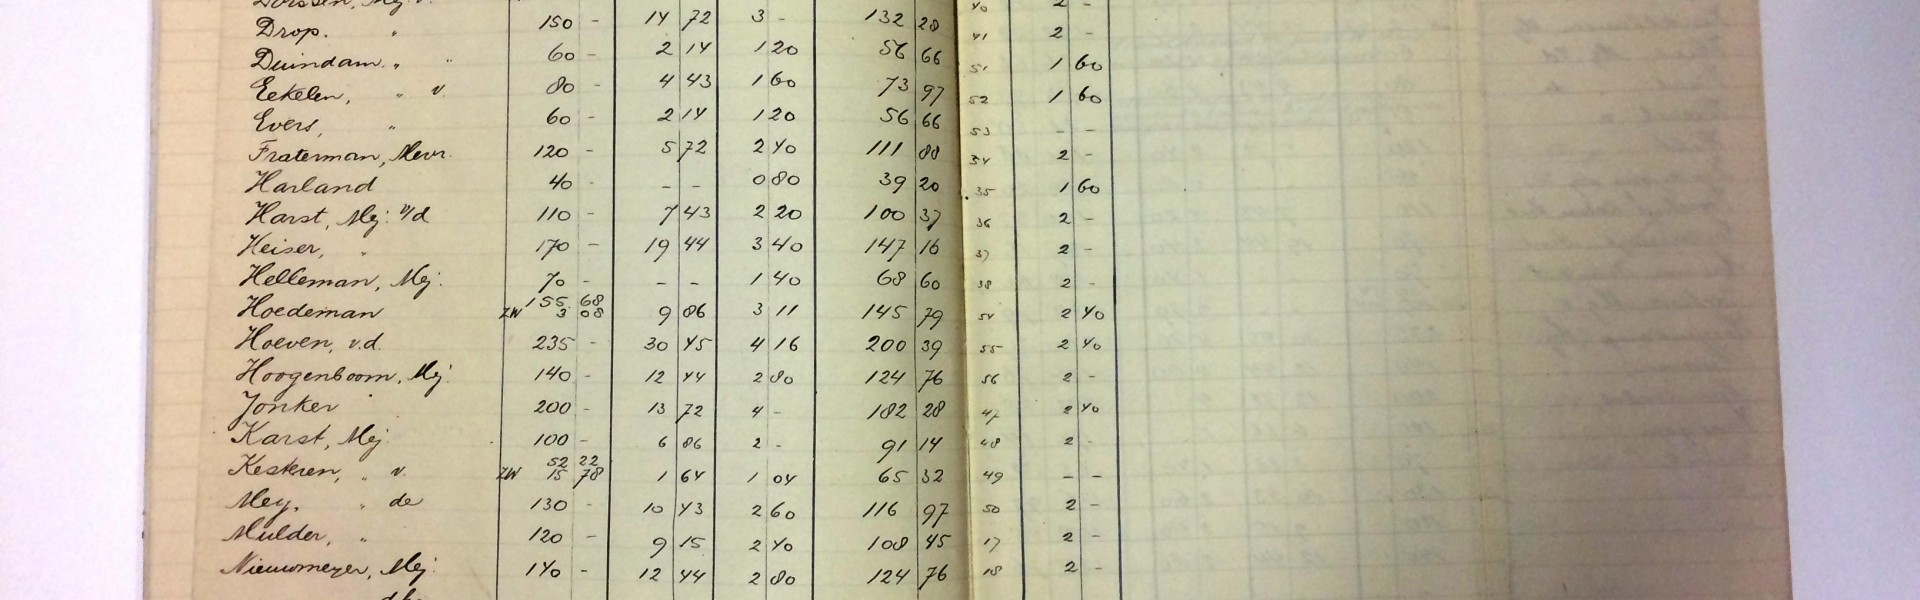 Dorssen, Mej. v. 40 2 -
Drop. " 150 - 14 72 3 - 132 28 41 2 -
Duindam, " " 60 - 2 14 1 20 56 66 51 1 60
Eekelen, " v. 80 - 4 43 1 60 73 97 52 1 60
Evers, " 60 - 2 14 1 20 56 66 53 - -
Fraterman, Mevr. 120 - 5 72 2 40 111 88 34 2 -
Harland 40 - - - 0 80 39 20 35 1 60
Harst, Mej. v/d 110 - 7 43 2 20 100 37 36 2 -
Heiser, " 170 - 19 44 3 40 147 16 37 2 -
Helleman, Mej. 70 - - - 1 40 68 60 38 2 -
Hoedeman 155 68 ZW 3 08 9 86 3 11 145 79 54 2 40
Hoeven, v.d. 235 - 30 45 4 16 200 39 55 2 40
Hoogenboom, Mej. 140 - 12 44 2 80 124 76 56 2 -
Jonker 200 - 13 72 4 - 182 28 47 2 40
Karst, Mej. 100 - 6 86 2 - 91 14 48 2 -
Kesteren, " v. 52 22 ZW 15 78 1 64 1 04 65 32 49 - -
Mey, " de 130 - 10 43 2 60 116 97 50 2 -
Mulder, " 120 - 9 15 2 40 108 45 17 2 -
Nieuwmeyer, Mej. 140 - 12 44 2 80 124 76 18 2 -